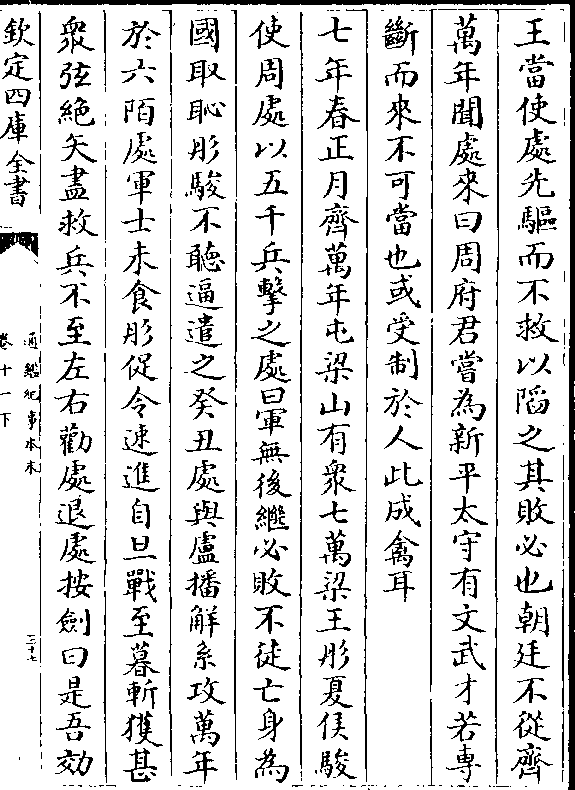 王當使處先驅而不救以陷之其敗必也朝廷不從齊
萬年聞處來曰周府君嘗為新平太守有文武才若專
斷而來不可當也或受制於人此成禽耳
七年春正月齊萬年屯梁山有衆七萬梁王肜夏侯駿
使周處以五千兵擊之處曰軍無後繼必敗不徒亡身為
國取恥肜駿不聽逼遣之癸丑處與盧播解系攻萬年
於六陌處軍士未食肜促令速進自旦戰至暮斬獲甚
衆弦絶矢盡救兵不至左右勸處退處按劍曰是吾効
欽定四庫全書
通鑑紀事本末
卷十一下
三十七